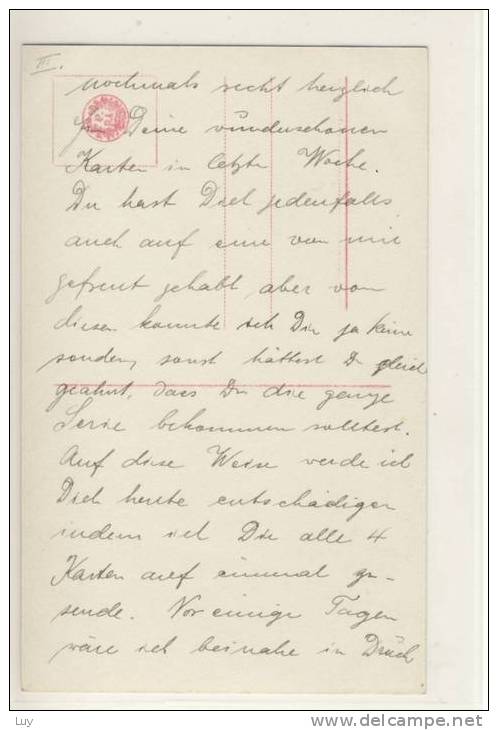 III.
nochmals recht herzlich
für Deine wunderschönen
Karten in letzte Woche.
Du hast Dich jedenfalls
auch auf eine von mir
gefreut gehabt aber von
diesen konnte ich Dir ja keine
senden, sonst hättest Du gleich
geahnt, dass Du die ganze
Serie bekommen solltest.
Auf diese Weise werde ich
Dich heute entschädigen
indem ich Dir alle 4
Karten auf einmal zu-
sende. Vor einige Tagen
wäre ich beinahe in Druck
Luy
delcampe.net